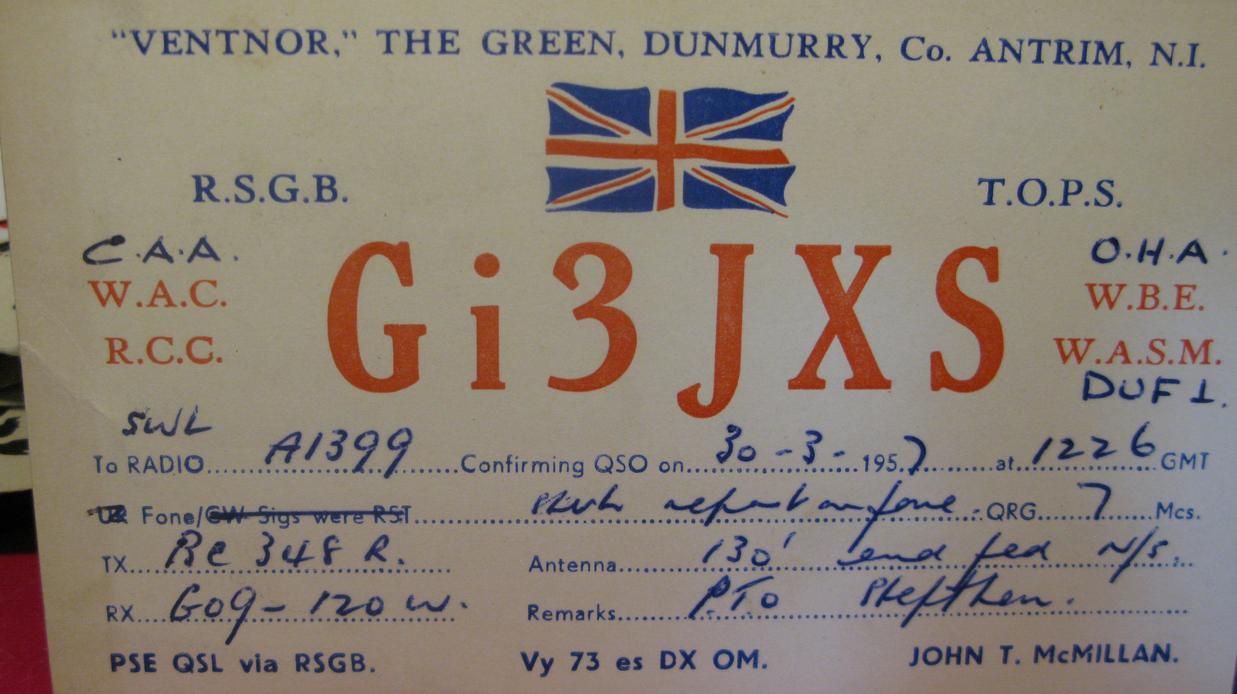 "VENTNOR," THE GREEN, DUNMURRY, Co. ANTRIM, N.I.
R.S.G.B. T.O.P.S.
C.A.A. O.H.A.
W.A.C. Gi3JXS W.B.E.
R.C.C. W.A.S.M.
DUF 1.
SWL
To RADIO A1399 Confirming QSO on 30-3-1957 at 1226 GMT
UR Fone/CW Sigs were RST report on fone. QRG 7 Mcs.
TX Bc 348 R. Antenna 130' end fed N/S.
RX G09-120 w. Remarks PTO Stephen.
PSE QSL via RSGB. Vy 73 es DX OM. JOHN T. McMILLAN.